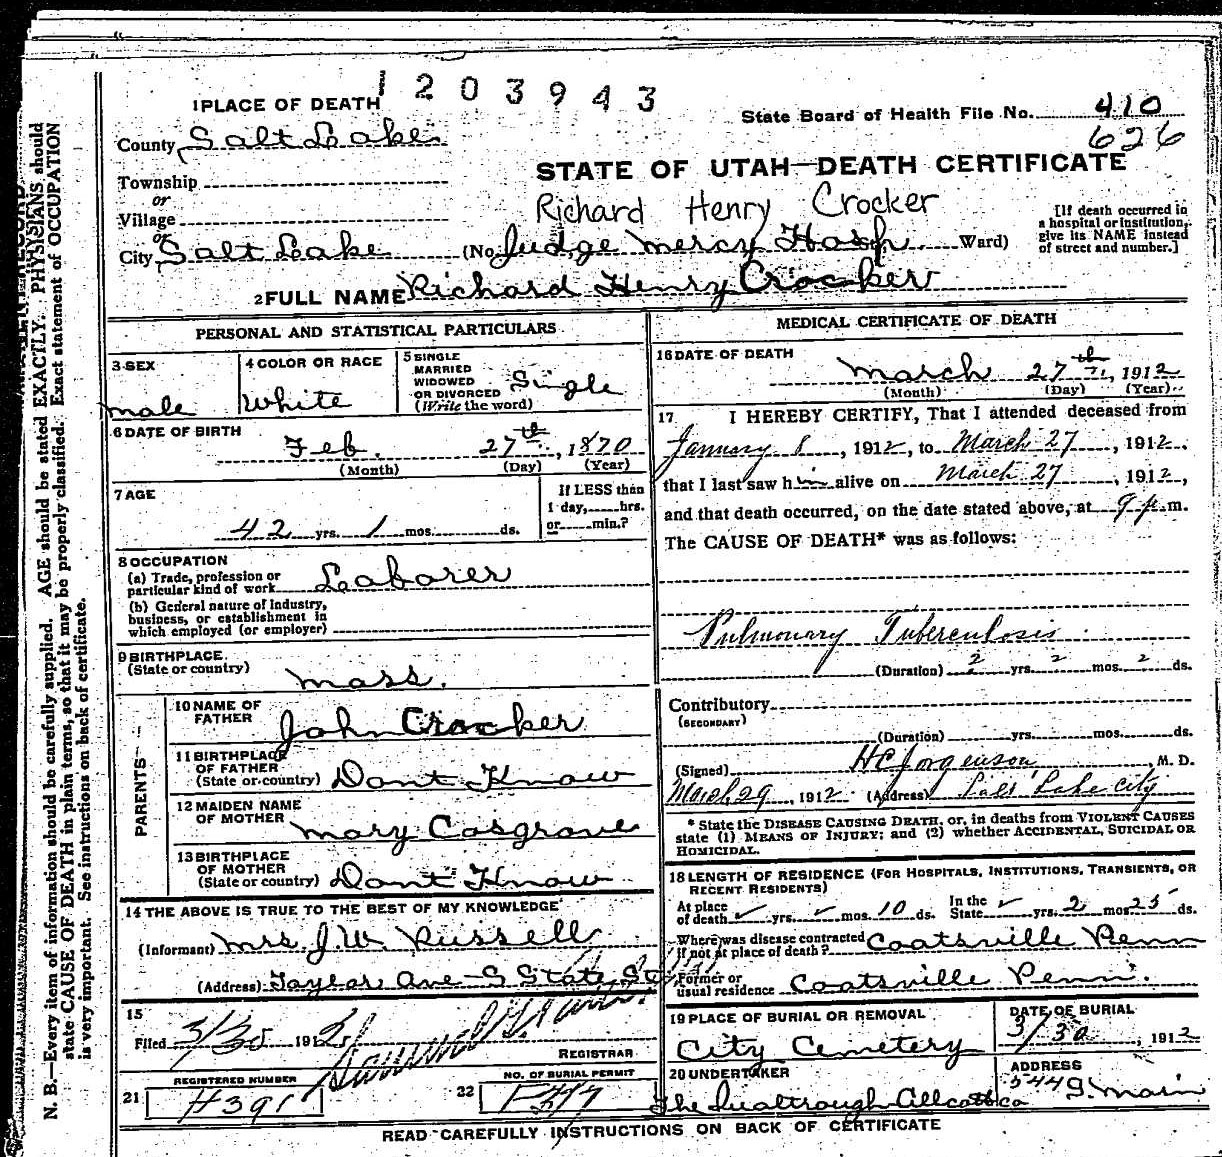 1203943
1 PLACE OF DEATH
State Board of Health File No. 410
626
County Salt Lake
STATE OF UTAH—DEATH CERTIFICATE
Township
or
Village
Richard Henry Crocker
[If death occurred in a hospital or institution, give its NAME instead of street and number.]
or
City Salt Lake (No. Judge Mercy Hosp. Ward)
2 FULL NAME Richard Henry Crocker
PERSONAL AND STATISTICAL PARTICULARS
3 SEX
male
4 COLOR OR RACE
White
5 SINGLE
MARRIED
WIDOWED
OR DIVORCED
(Write the word)
Single
6 DATE OF BIRTH
Feb. 27th, 1870
(Month) (Day) (Year)
7 AGE
42 yrs. 1 mos. ds.
If LESS than
1 day, hrs.
or min.?
8 OCCUPATION
(a) Trade, profession or
particular kind of work Laborer
(b) General nature of Industry,
business, or establishment in
which employed (or employer)
9 BIRTHPLACE
(State or country)
Mass.
PARENTS
10 NAME OF
FATHER
John Crocker
11 BIRTHPLACE
OF FATHER
(State or country) Dont Know
12 MAIDEN NAME
OF MOTHER
Mary Cosgrove
13 BIRTHPLACE
OF MOTHER
(State or country) Dont Know
14 THE ABOVE IS TRUE TO THE BEST OF MY KNOWLEDGE
(Informant) Mrs J W Russell
(Address) Taylor Ave S State St
15
Filed 3/30 1912
REGISTRAR
REGISTERED NUMBER
21 H391
NO. OF BURIAL PERMIT
22
MEDICAL CERTIFICATE OF DEATH
16 DATE OF DEATH
March 27th, 1912
(Month) (Day) (Year)
17 I HEREBY CERTIFY, That I attended deceased from
January 8, 1912, to March 27, 1912,
that I last saw him alive on March 27, 1912,
and that death occurred, on the date stated above, at 9 p.m.
The CAUSE OF DEATH* was as follows:
Pulmonary Tuberculosis
(Duration) 2 yrs. 2 mos. 2 ds.
Contributory
(SECONDARY)
(Duration) yrs. mos. ds.
(Signed) H C Jorgenson, M. D.
March 29, 1912 (Address) Salt Lake City
* State the DISEASE CAUSING DEATH, or, in deaths from VIOLENT CAUSES
state (1) MEANS OF INJURY; and (2) whether ACCIDENTAL, SUICIDAL OR
HOMICIDAL.
18 LENGTH OF RESIDENCE (FOR HOSPITALS, INSTITUTIONS, TRANSIENTS, OR
RECENT RESIDENTS)
At place
of death ✓ yrs. ✓ mos. 10 ds. In the State ✓ yrs. 2 mos. 25 ds.
Where was disease contracted
if not at place of death? Coatsville Penn
Former or
usual residence Coatsville Penn.
19 PLACE OF BURIAL OR REMOVAL
City Cemetery
DATE OF BURIAL
3/30, 1912
20 UNDERTAKER
ADDRESS
544 S. Main
READ CAREFULLY INSTRUCTIONS ON BACK OF CERTIFICATE
N. B.—Every item of information should be carefully supplied. AGE should be stated EXACTLY. PHYSICIANS should
state CAUSE OF DEATH in plain terms, so that it may be properly classified. Exact statement of OCCUPATION
is very important. See instructions on back of certificate.